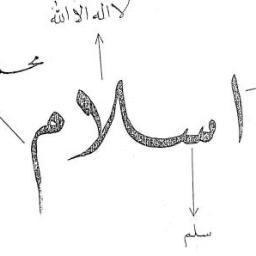 لا اله الا الله
اسلام
سلم